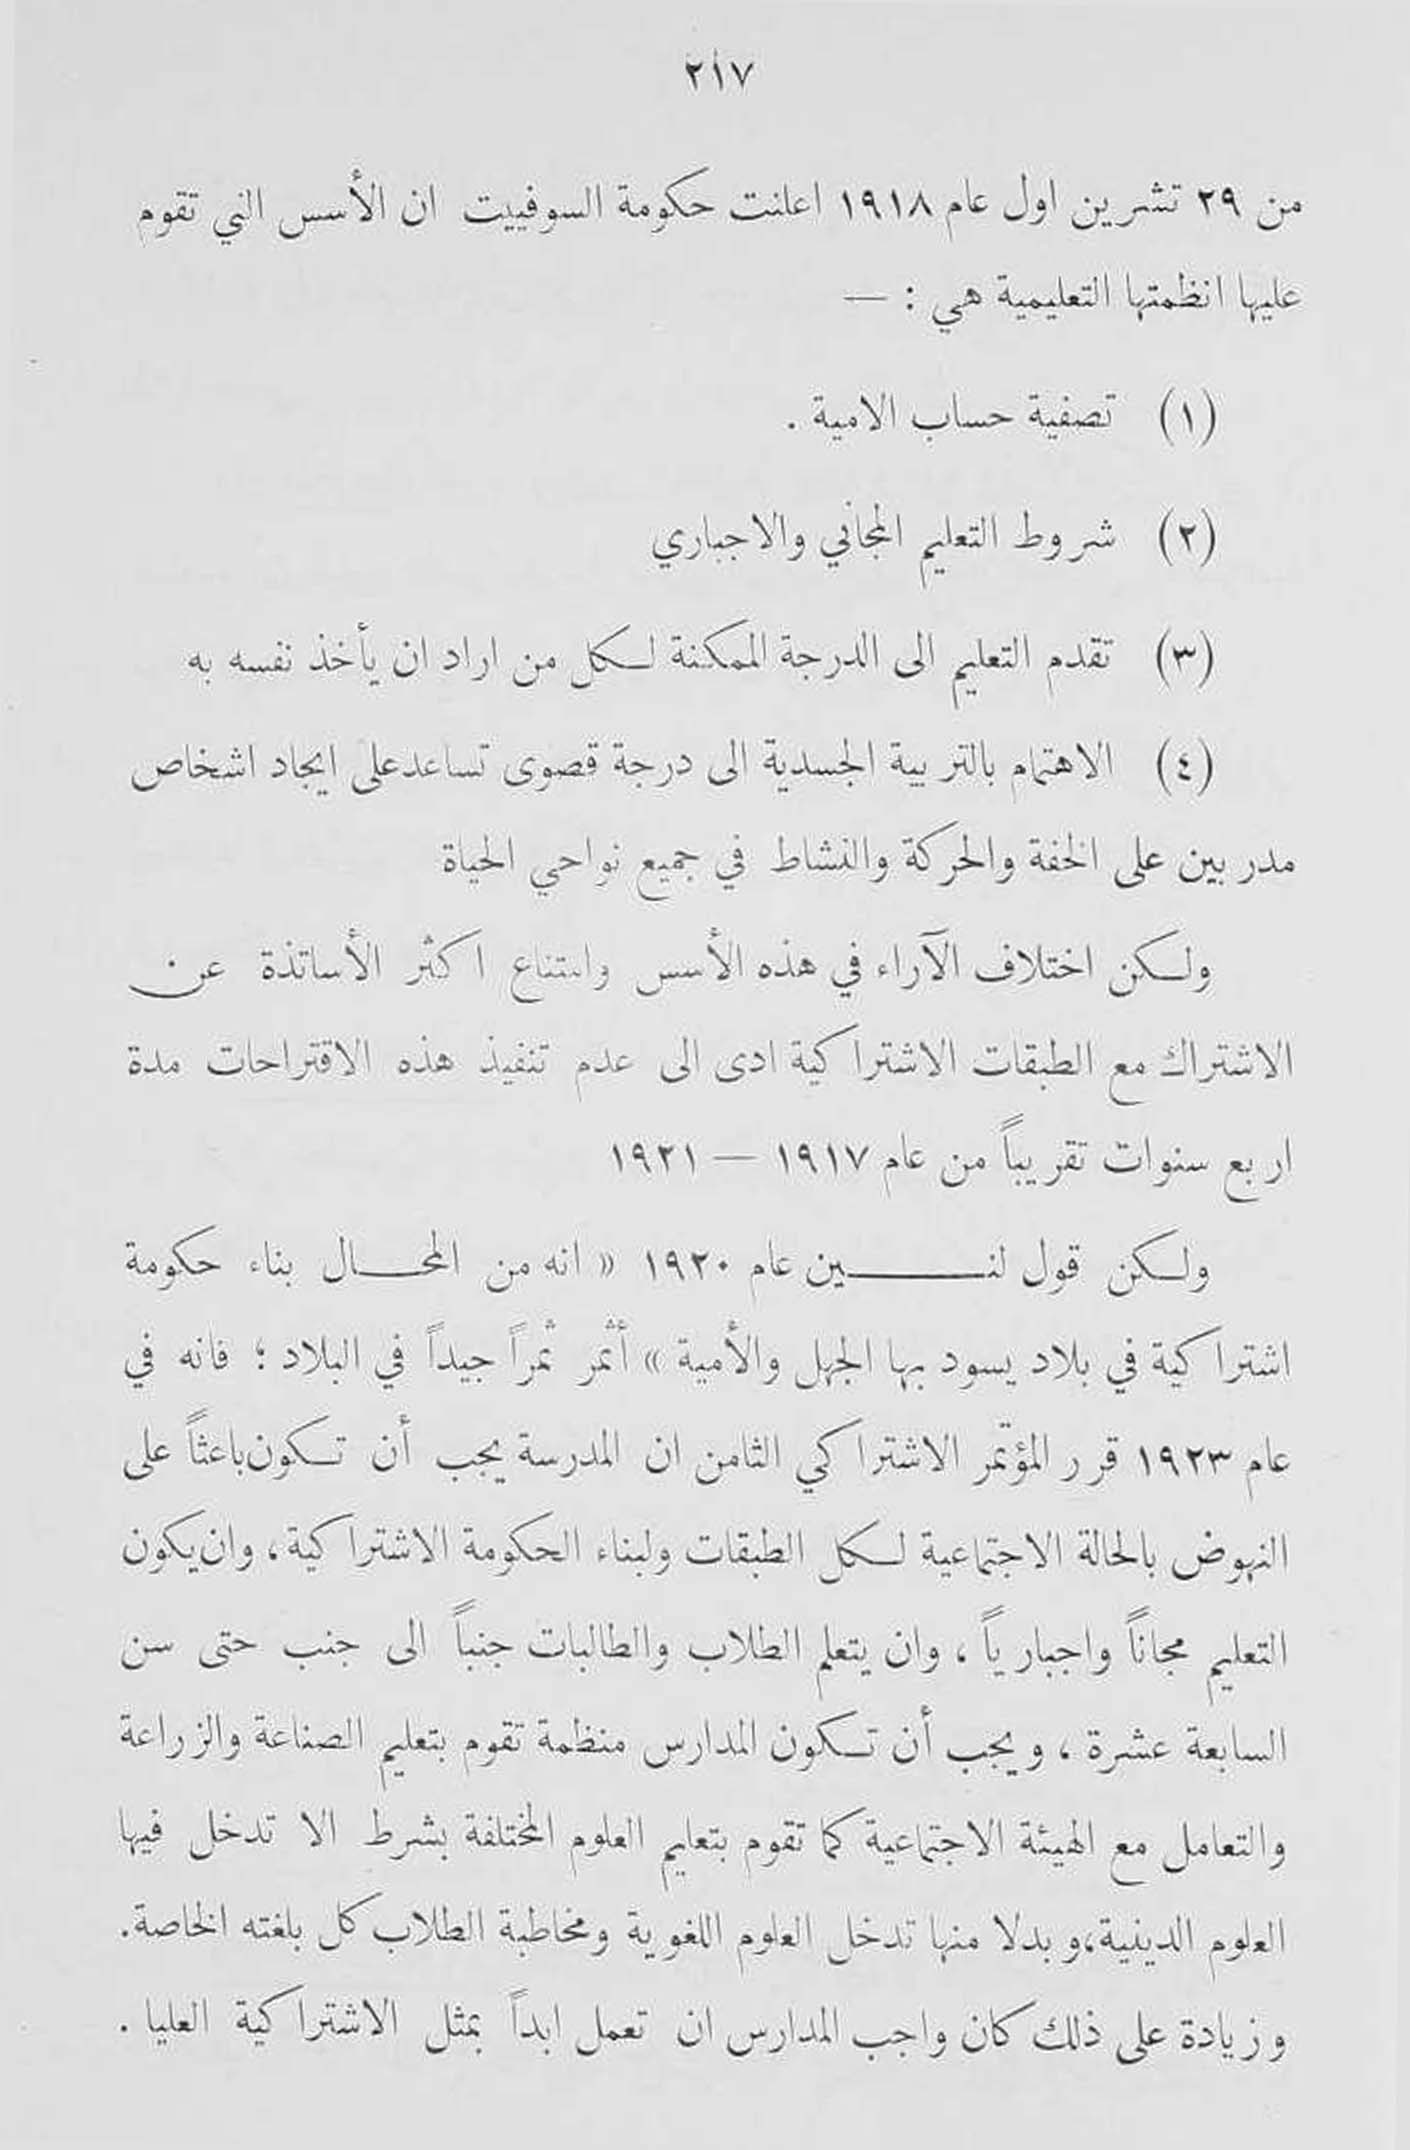 ٢١٧
من ٢٩ تشرين اول عام ١٩١٨ اعلنت حكومة السوفييت ان الأسس التي تقوم
عليها انظمتها التعليمية هي : —
(١) تصفية حساب الامية .
(٢) شروط التعليم المجاني والاجباري
(٣) تقدم التعليم الى الدرجة الممكنة لكل من اراد ان يأخذ نفسه به
(٤) الاهتمام بالتربية الجسدية الى درجة قصوى تساعد على ايجاد اشخاص
مدربين على الخفة والحركة والنشاط في جميع نواحي الحياة
ولكن اختلاف الآراء في هذه الأسس وامتناع اكثر الأساتذة عن
الاشتراك مع الطبقات الاشتراكية ادى الى عدم تنفيذ هذه الاقتراحات مدة
اربع سنوات تقريباً من عام ١٩١٧ — ١٩٢١
ولكن قول لنين عام ١٩٢٠ « انه من المحال بناء حكومة
اشتراكية في بلاد يسود بها الجهل والأمية » أثمر ثمراً جيداً في البلاد ؛ فانه في
عام ١٩٢٣ قرر المؤتمر الاشتراكي الثامن ان المدرسة يجب أن تكون باعثاً على
النهوض بالحالة الاجتماعية لكل الطبقات ولبناء الحكومة الاشتراكية ، وان يكون
التعليم مجاناً واجبارياً ، وان يتعلم الطلاب والطالبات جنباً الى جنب حتى سن
السابعة عشرة ، ويجب أن تكون المدارس منظمة تقوم بتعليم الصناعة والزراعة
والتعامل مع الهيئة الاجتماعية كما تقوم بتعليم العلوم المختلفة بشرط الا تدخل فيها
العلوم الدينية ، وبدلا منها تدخل العلوم اللغوية ومخاطبة الطلاب كل بلغته الخاصة .
وزيادة على ذلك كان واجب المدارس ان تعمل ابداً بمثل الاشتراكية العليا .